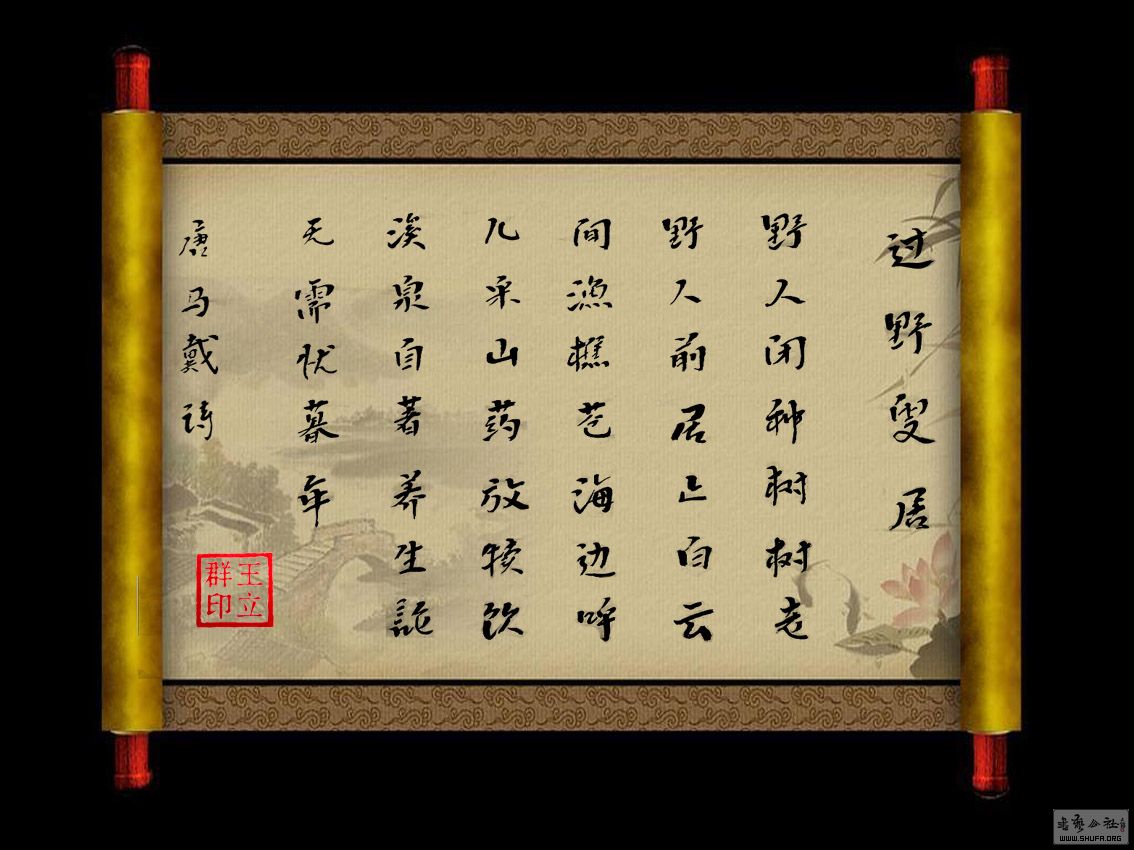 过野叟居
野人闲种树树老
野人前居止白云
间渔樵苍海边呼
儿采山药放犊饮
溪泉自著养生
无需忧暮年
唐马戴诗
王立群印
书艺公社
WWW.SHUFA.ORG